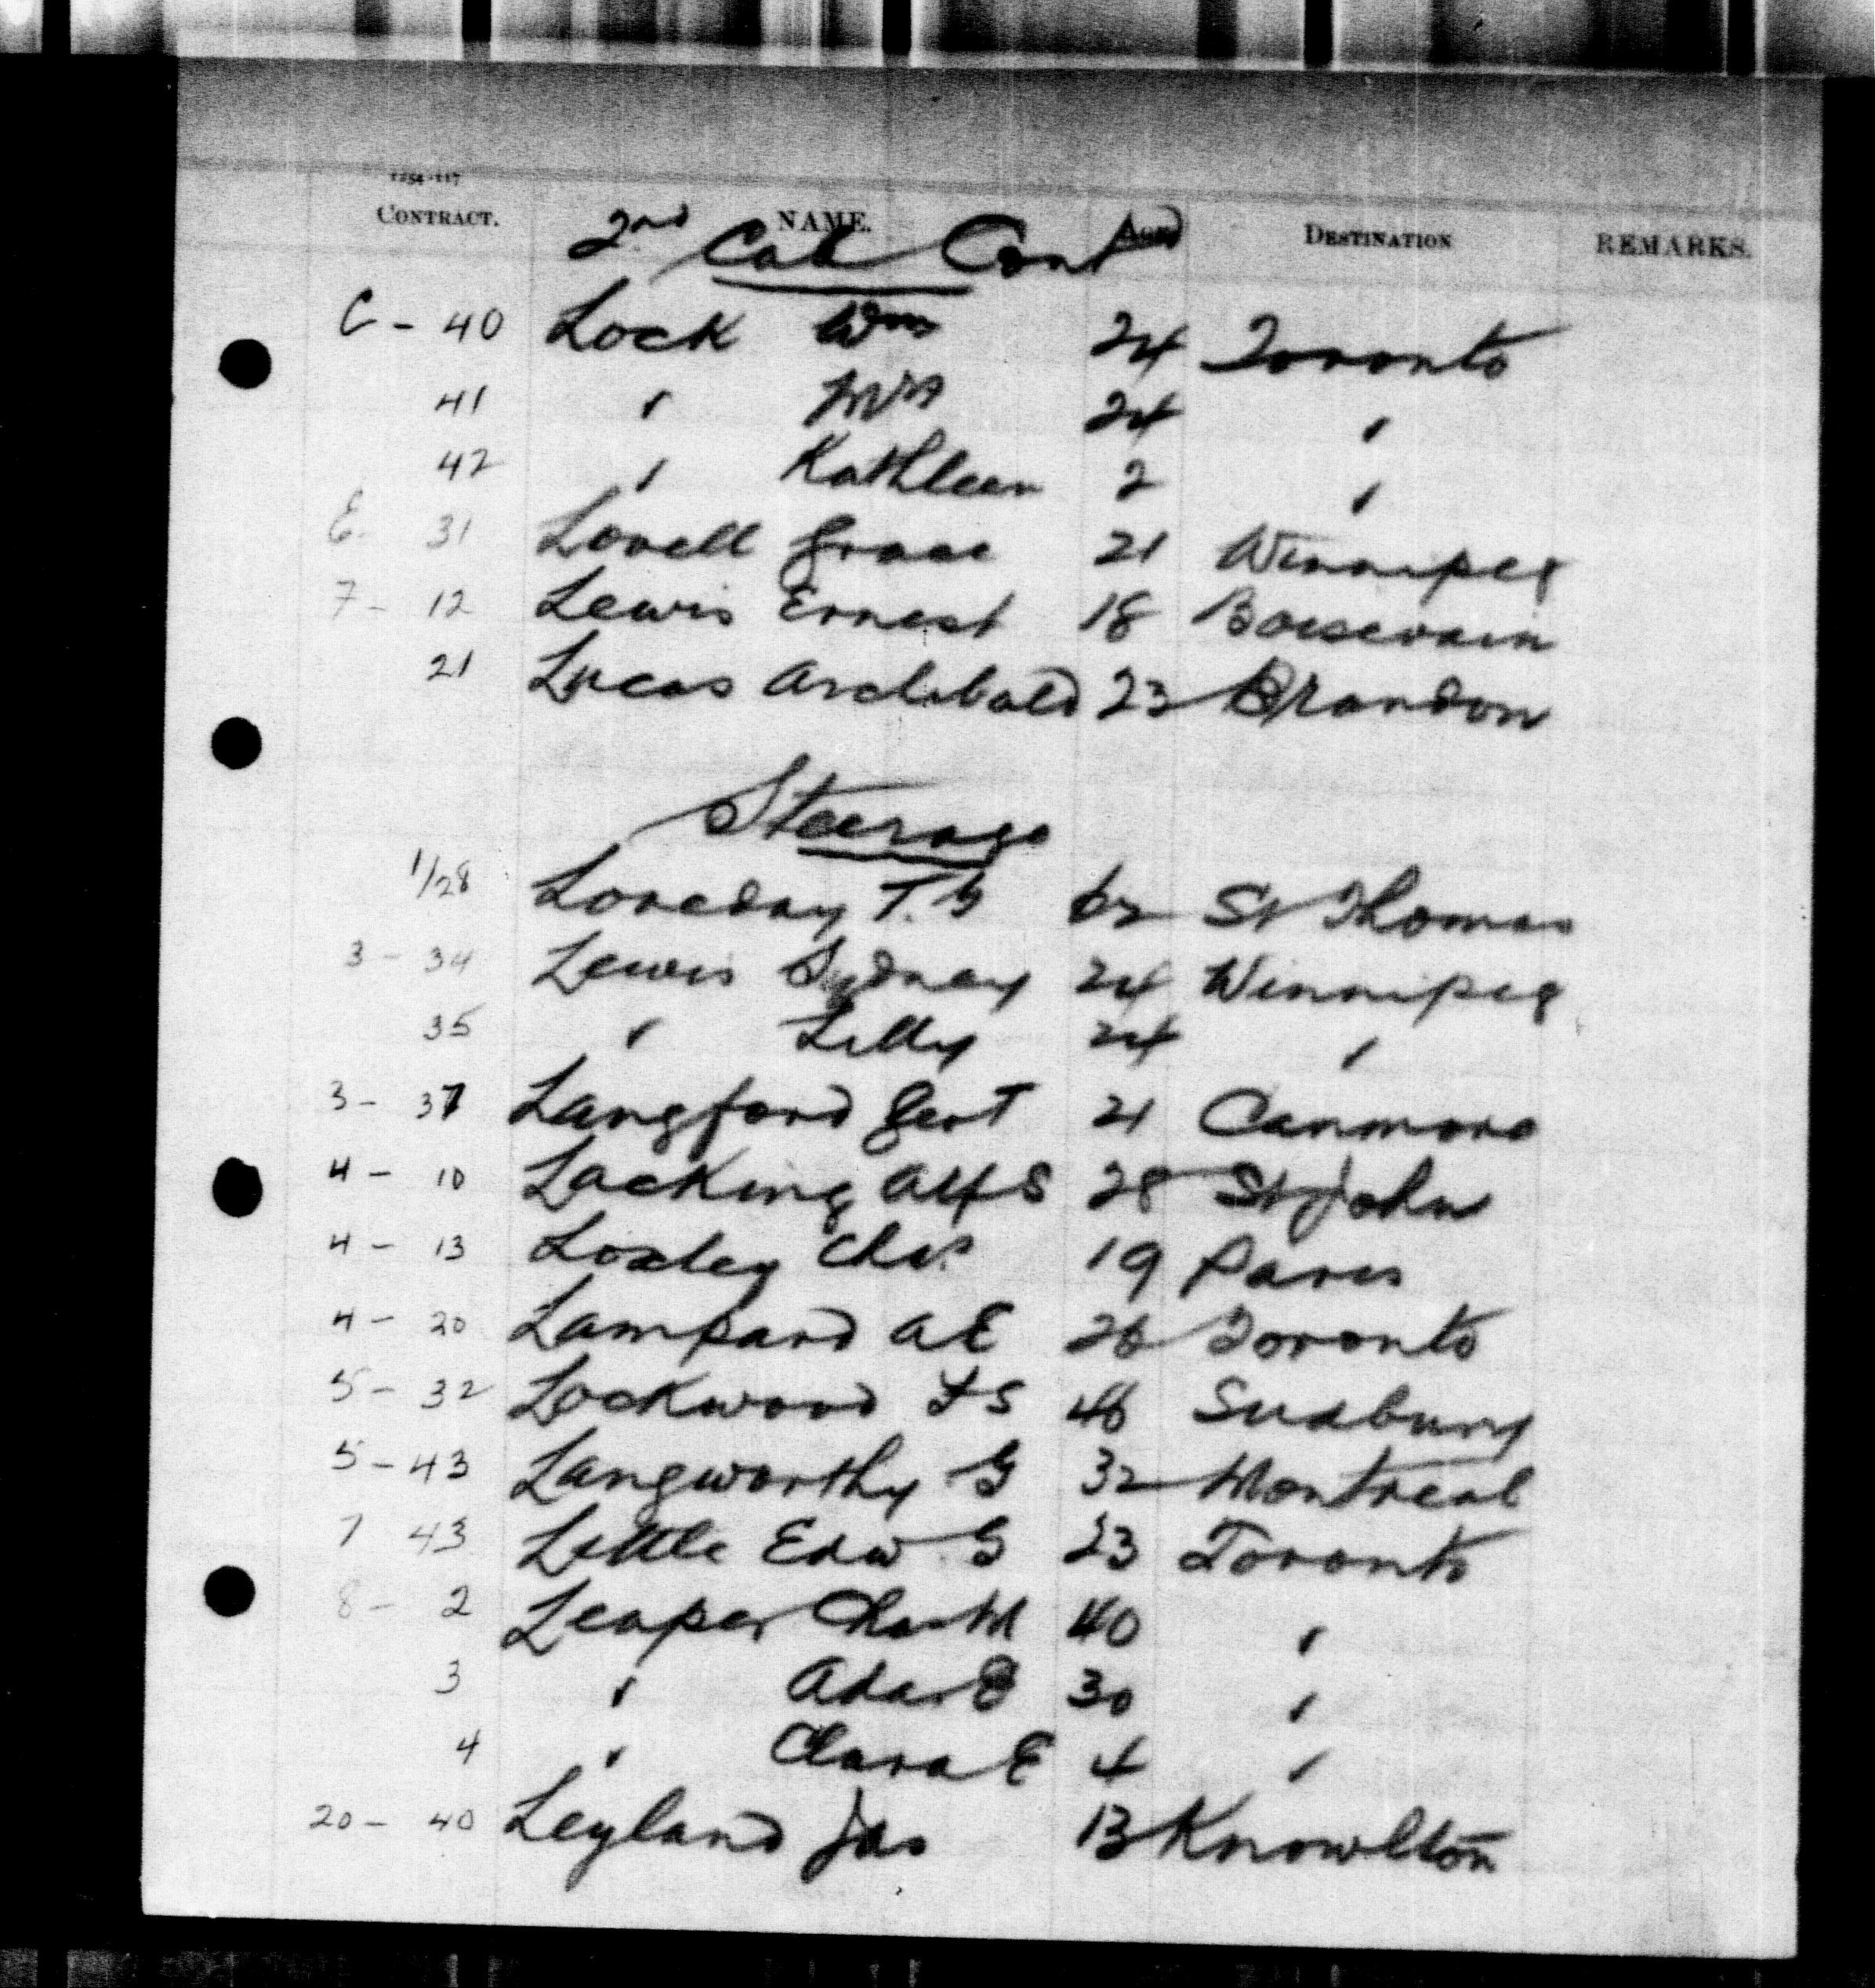 1254-117
CONTRACT. NAME. AGE DESTINATION REMARKS.
2nd Cab Cont
C - 40 Lock Wm 24 Toronto
41 " Mrs 24 "
42 " Kathleen 2 "
E- 31 Lovell Grace 21 Winnipeg
7- 12 Lewis Ernest 18 Boissevain
21 Lucas Archibald 23 Brandon
Steerage
1/28 Loveday T. G 62 St Thomas
3 - 34 Lewis Sydney 24 Winnipeg
35 " Lilly 24 "
3- 37 Langford Gert 21 Canmore
4 - 10 Lacking Alf S 28 St John
4 - 13 Loxley Chas 19 Paris
4 - 20 Lampard A E 26 Toronto
5 - 32 Lockwood F S 46 Sudbury
5 - 43 Langworthy G 32 Montreal
7 43 Little Edw. G 23 Toronto
8 - 2 Leaper Chas M 40 "
3 " Ada B 30 "
4 " Clara E 4 "
20 - 40 Leyland Jas 13 Knowlton